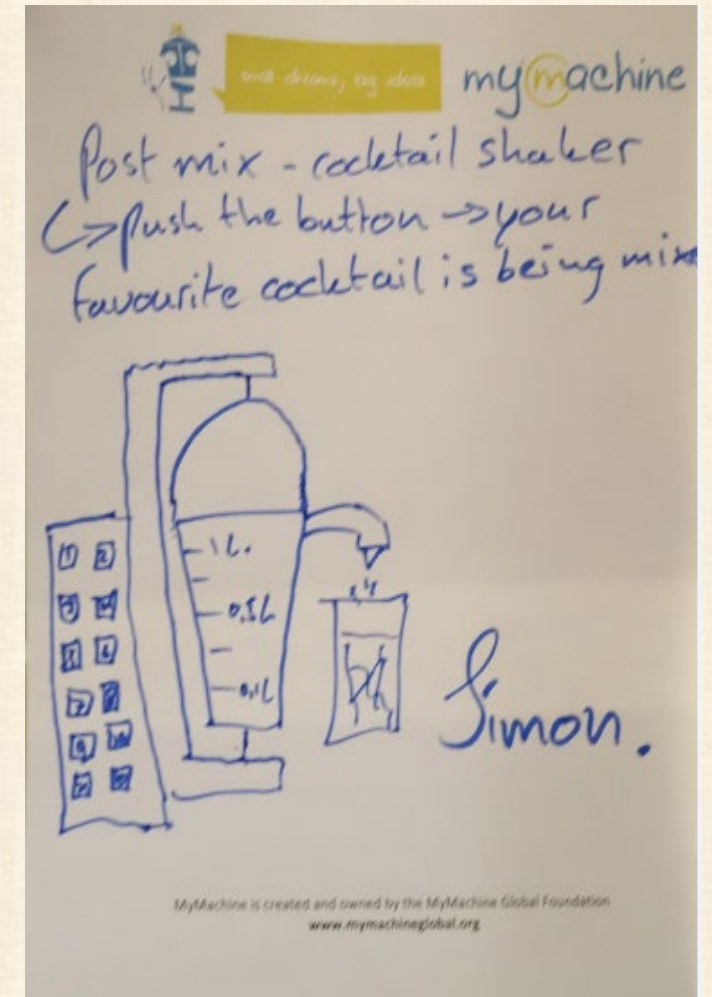 small dreams, big ideas
mymachine
Post mix - cocktail shaker
↳ push the button → your
favourite cocktail is being mixe
1 L.
0,5L
0,1L
1 2
3 4
5 6
7 8
9 10
Simon.
MyMachine is created and owned by the MyMachine Global Foundation
www.mymachineglobal.org